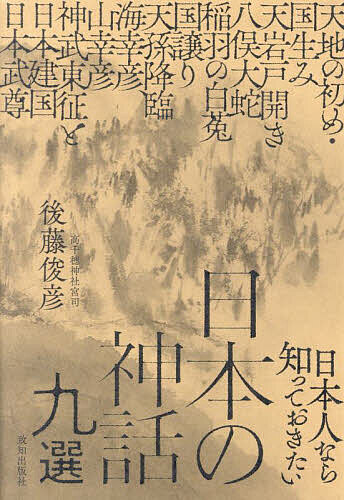 天地の初め・
国生み
天岩戸開き
八俣大蛇
稲羽の白菟
国譲り
天孫降臨
海幸彦
山幸彦
神武東征と
日本建国
日本武尊
日本人なら
知っておきたい
日本の
神話
九選
高千穂神社宮司
後藤俊彦
致知出版社